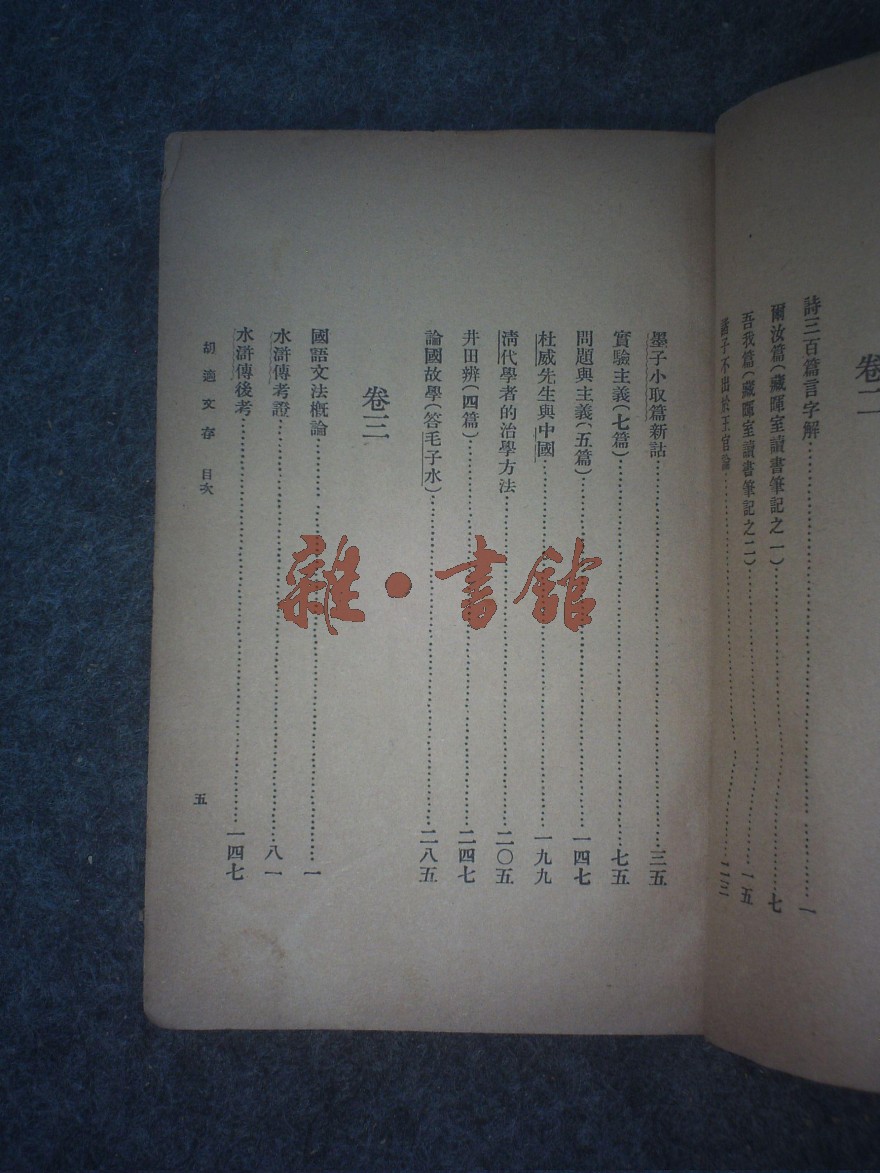 卷二
詩三百篇言字解……一
爾汝篇(藏暉室讀書筆記之一)……七
吾我篇(藏暉室讀書筆記之二)……一五
諸子不出於王官論……二三
墨子小取篇新詁……三五
實驗主義(七篇)……七五
問題與主義(五篇)……一四七
杜威先生與中國……一九九
清代學者的治學方法……二〇五
井田辨(四篇)……二四七
論國故學(答毛子水)……二八五
卷三
國語文法概論……一
水滸傳考證……八一
水滸傳後考……一四七
胡適文存 目次
五
雜·書館